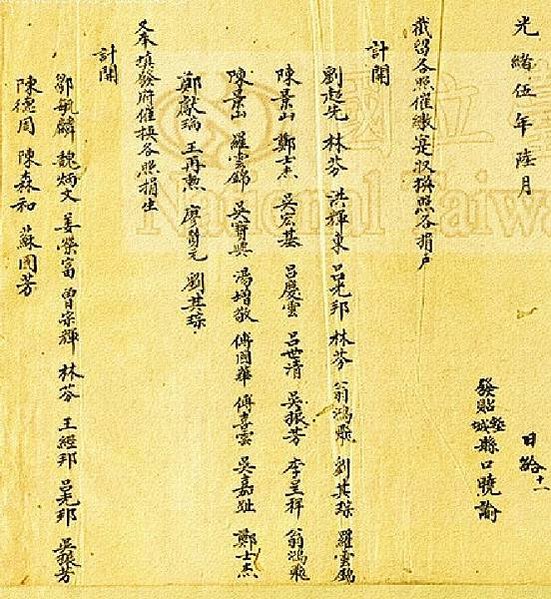 光緒伍年陸月
日給 十一
發貼 縣口曉諭
城
截留各照催繳定收換照各捐戶
計開
劉起先 林芬 洪輝東 呂光邦 林芬 翁鴻飛 劉其琮 羅雲錦
陳景山 鄭士杰 吳宏基 呂慶雲 呂世清 吳振芳 李呈祥 翁鴻飛
陳景山 羅雲錦 吳寶興 湯增敬 傅國華 傅喜雲 吳嘉址 鄭士杰
鄭獻瑞 王再 廖 元 劉其琮
又奉填發府催換各照捐生
計開
鄒毓麟 魏炳文 姜榮富 曾宗輝 林芬 王經邦 呂光邦 吳振芳
陳德周 陳森和 蘇團芳
國立臺
National Taiwa